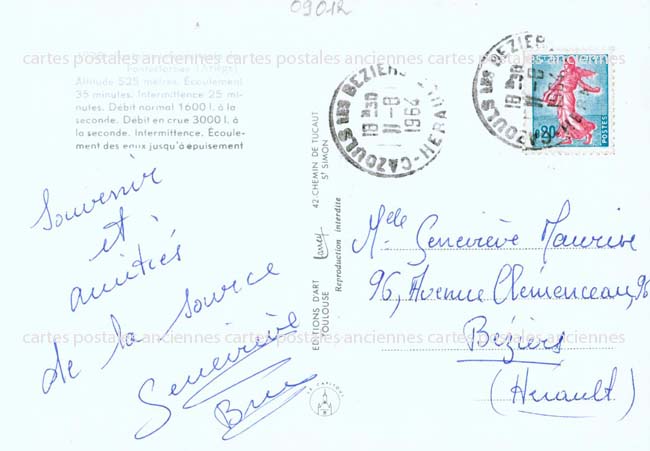 09012
cartes postales anciennes cartes postales anciennes cartes postales anciennes
Altitude 525 mètres. Écoulement
35 minutes. Intermittence 25 mi-
nutes. Débit normal 1600 l. à la
seconde. Débit en crue 3000 l. à
la seconde. Intermittence. Écoule-
ment des eaux jusqu'à épuisement
Souvenir
et
amitiés
de la source
Geneviève
EDITIONS D'ART
TOULOUSE
42, CHEMIN DE TUCAUT
ST SIMON
Larrey
Reproduction interdite
LE CAPITOUL
CAZOULS LES BEZIERS
HERAULT
18 H 30
11-8
1964
CAZOULS LES BEZIERS
18 H 30
11-8
1964
0,20
POSTES
Mlle Geneviève Maurise
96, Avenue Clémenceau, 96
Béziers
(Hérault)
cartes postales anciennes cartes postales anciennes cartes postales anciennes